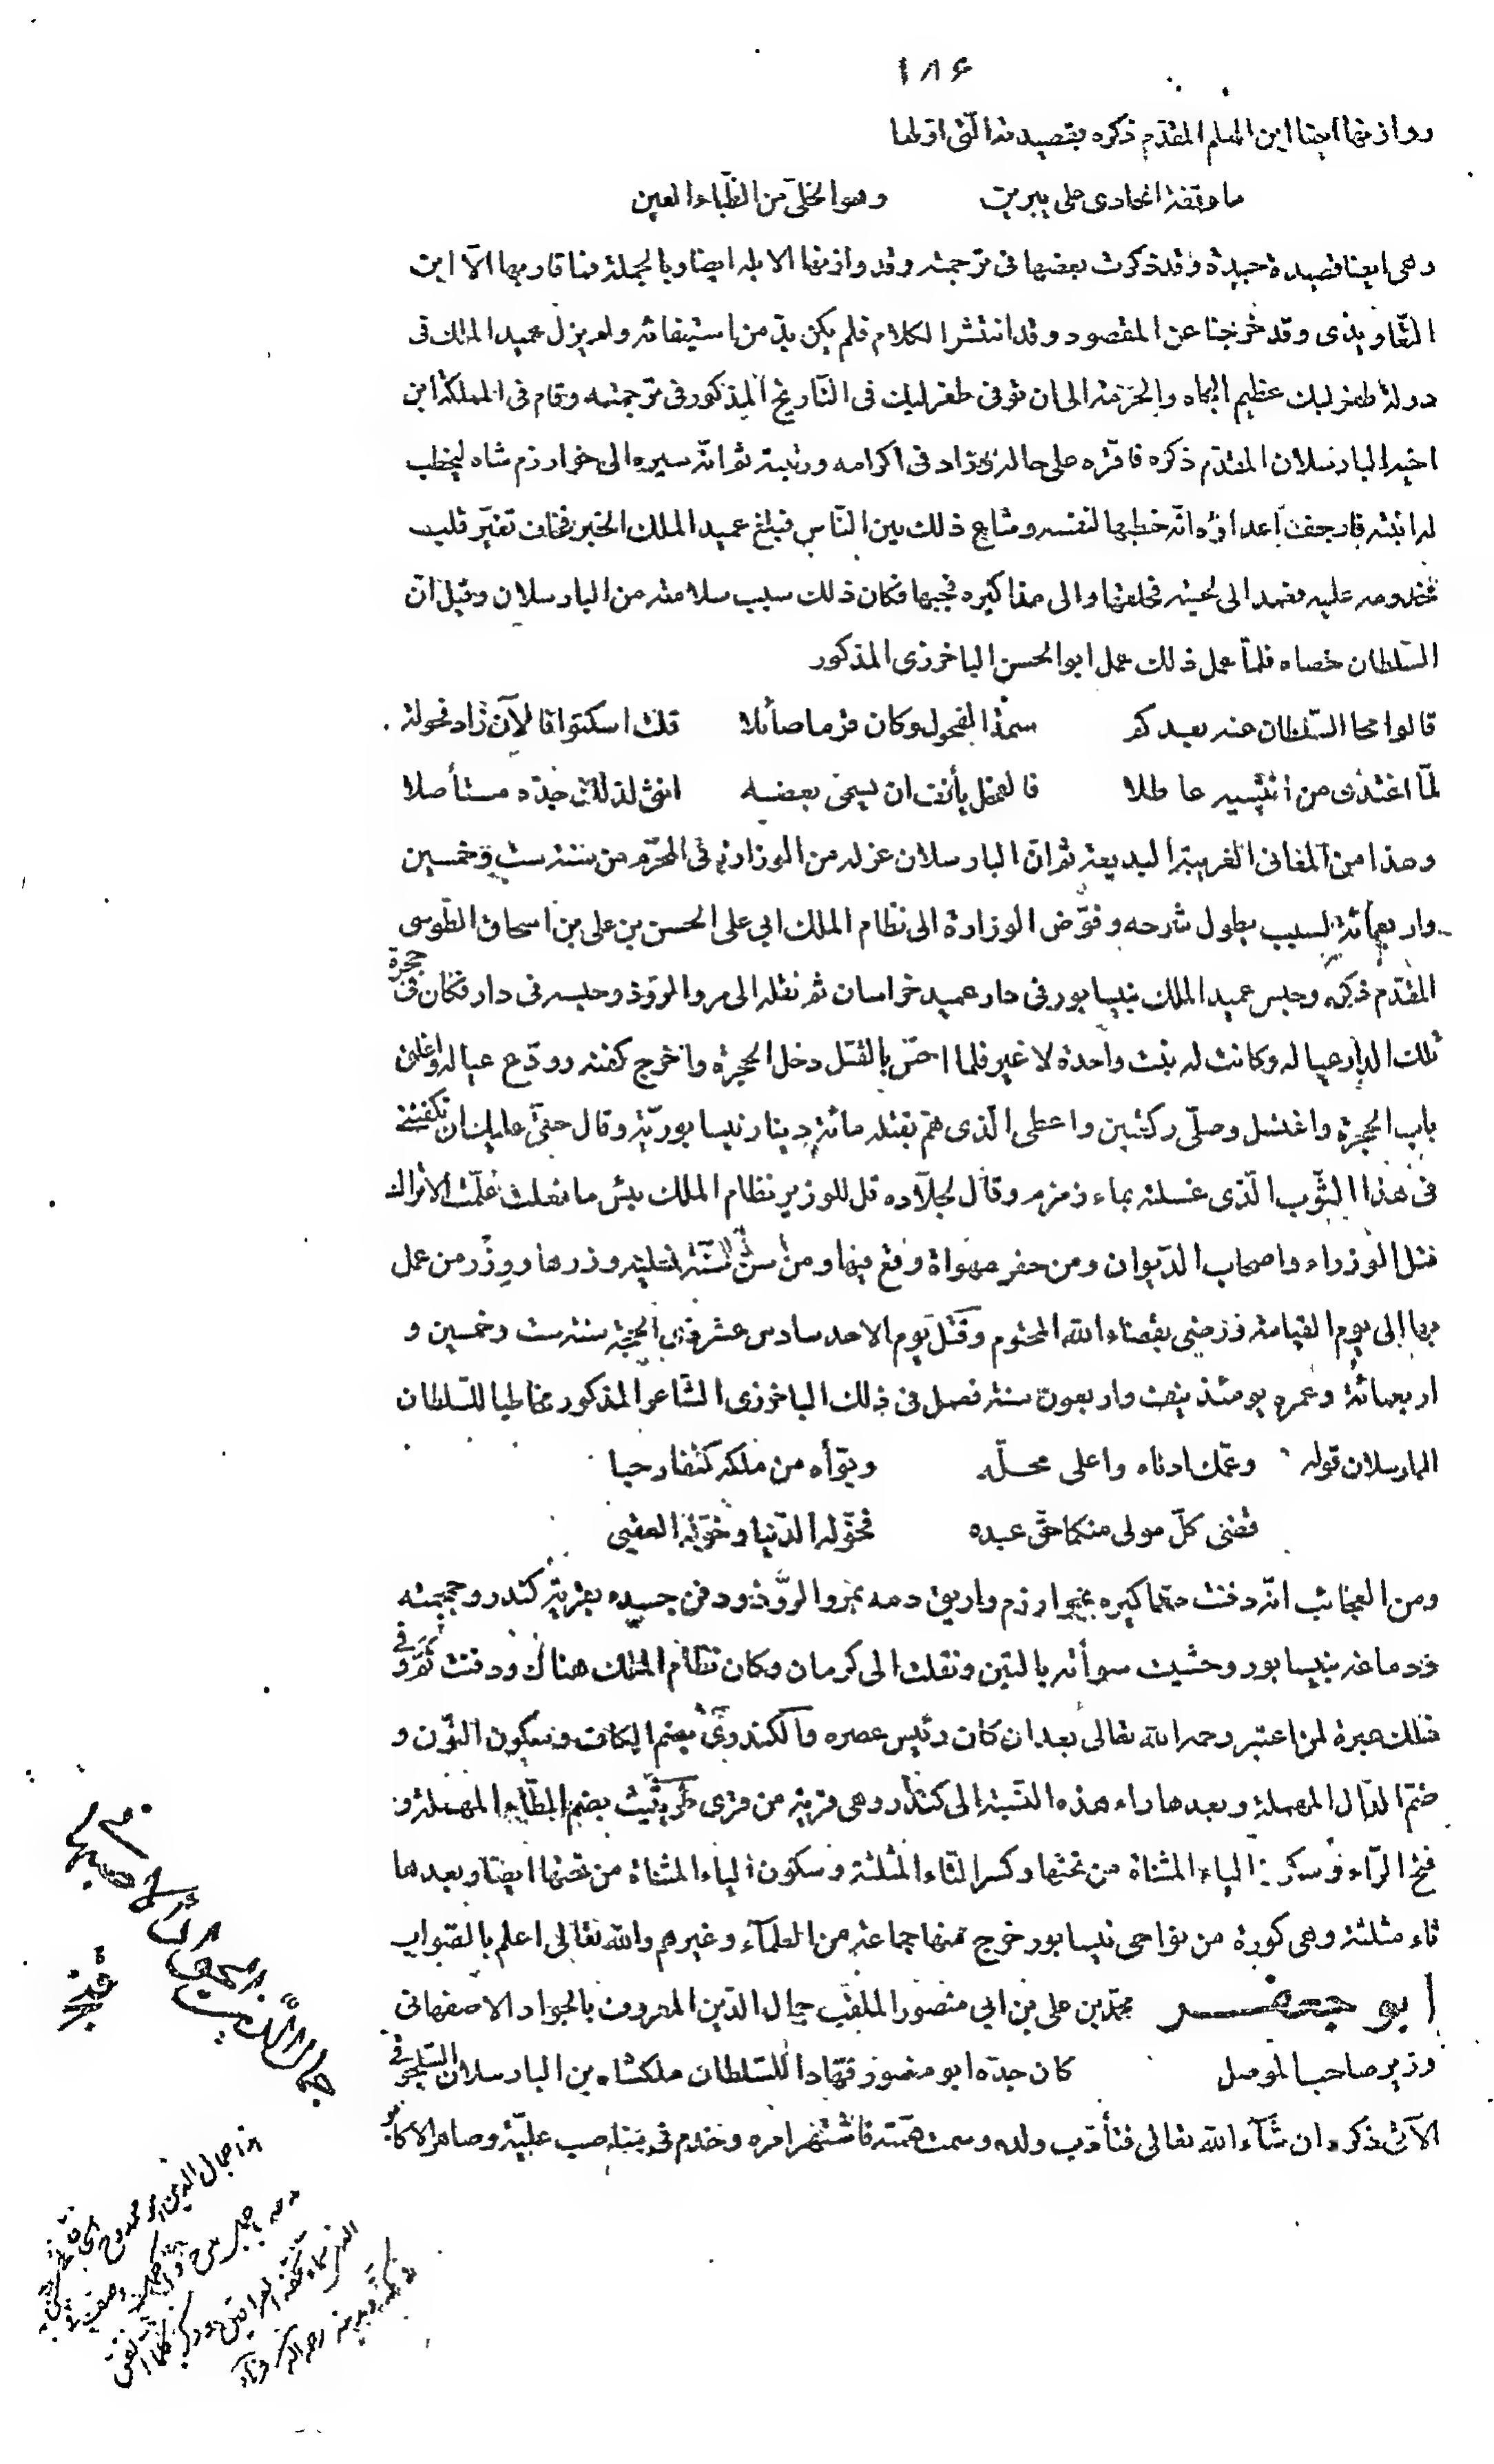 ١٨۶
ووازنها ايضا ابن المعلم المقدّم ذكره بقصيدته الّتى اوّلها
ما وقفة الحادى على يبرين وهو الخلىّ من الظّباء العين
وهى ايضا قصيدة جيدة وقد ذكرت بعضها فى ترجمته وقد وازنها الابله ايضا وبالجملة فما قاربها الّا ابن
التّعاويذى وقد خرجنا عن المقصود وقد انتشر الكلام فلم يكن بدّ من استيفائه ولم يزل عميد الملك فى
دولة طغرلبك عظيم الجاه والحرمة الى ان توفى طغرلبك فى التّاريخ المذكور فى ترجمته وقام فى المملكة ابن
اخيه البارسلان المقدّم ذكره فاقرّه على حاله وزاد فى اكرامه ورتبته ثم انّه سيره الى خوارزم شاه ليخطب
له ابنته فارجف اعداؤه انّه خطبها لنفسه وشاع ذلك بين النّاس فبلغ عميد الملك الخبر فخاف تغيّر قلب
مخدومه عليه فعمد الى لحيته فحلقها والى مذاكيره فجبها فكان ذلك سبب سلامته من البارسلان وقيل انّ
السّلطان خصاه فلمّا عمل ذلك عمل ابو الحسن الباخرزى المذكور
قالوا محا السّلطان عنه بعدكم سمة الفحول وكان قرما صائلا قلت اسكتوا فالآن زاد فحولة
لمّا اغتدى من انثييه عاطلا فالفحل يأنف ان يسمى بعضه انثى لذلك جذّه مستأصلا
وهذا من المعانى الغريبة البديعة ثم انّ البارسلان عزله من الوزارة فى المحرّم من سنة ستّ وخمسين
واربعمائة لسبب يطول شرحه وفوّض الوزارة الى نظام الملك ابى على الحسن بن على بن اسحاق الطّوسى
المقدّم ذكره وحبس عميد الملك بنيسابور فى دار عميد خراسان ثم نقله الى مرو الروّذ وحبسه فى دار فكان فى حجرة
تلك الدار عياله وكانت له بنت واحدة لا غير فلما احسّ بالقتل دخل الحجرة واخرج كفنه وودّع عياله واغلق
باب الحجرة واغتسل وصلّى ركعتين واعطى الّذى همّ بقتله مائة دينار نيسابوريّة وقال حقّى عليك ان تكفننى
فى هذا الثّوب الّذى غسلته بماء زمزم وقال لجلّاده قل للوزير نظام الملك بئس ما فعلت علّمت الاتراك
قتل الوزراء واصحاب الدّيوان ومن حفر مهواة وقع فيها ومن سنّ سنّة سيئة فعليه وزرها ووزر من عمل
بها الى يوم القيامة ورضى بقضاء الله المحتوم وقتل يوم الاحد سادس عشر ذى الحجّة سنة ست وخمسين و
اربعمائة وعمره يومئذ نيف واربعون سنة فعمل فى ذلك الباخرزى الشّاعر المذكور مخاطبا للسّلطان
البارسلان قوله وعمّك ادناه واعلى محلّه وبوّأه من ملكه كنفا رحبا
قضى كلّ مولى منكما حقّ عبده فخوّله الدّنيا وخوّلته العقبى
ومن العجائب انّه دفنت مذاكيره بخوارزم واريق دمه بمرو الروّذ ودفن جسده بقرية كندر وجمجمته
ودماغه بنيسابور وحشيت سوأته بالتبن ونقلت الى كرمان وكان نظام الملك هناك ودفنت ثمّ وفى
ذلك عبرة لمن اعتبر رحمه الله تعالى بعد ان كان رئيس عصره والكندرىّ بضم الكاف وسكون النّون و
ضمّ الدّال المهملة وبعدها راء هذه النّسبة الى كندر وهى قرية من قرى طريثيث بضم الطّاء المهملة و
فتح الرّاء وسكون الياء المثناة من تحتها وكسر الثّاء المثلثة وسكون الياء المثناة من تحتها ايضا وبعدها
ثاء مثلثة وهى كورة من نواحى نيسابور خرج منها جماعة من العلمآء وغيرهم والله تعالى اعلم بالصّواب
ابو جعفر محمّد بن على بن ابى منصور الملقّب جمال الدّين المعروف بالجواد الاصفهانى
وزير صاحب الموصل كان جدّه ابو منصور فهّادا للسّلطان ملكشاه بن البارسلان السّلجوقى
الآتى ذكره ان شآء الله تعالى فتأدّب ولده وسمت همّته فاشتهر امره وخدم فى مناصب عليّة وصاهر الاكابر